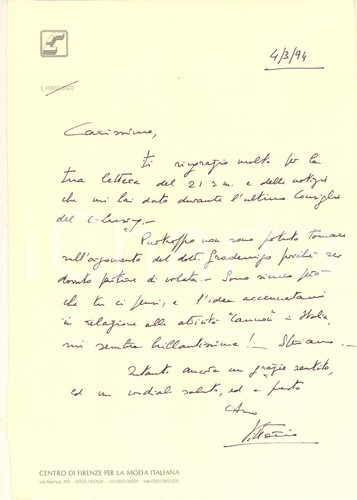 4/3/94
IL PRESIDENTE
Carissimo,
ti ringrazio molto per la
tua lettera del 21 s.m. e delle notizie
che mi hai dato durante l'ultimo Consiglio
del
Purtroppo non sono potuto tornare
sull'argomento del dott. Gradenigo poiché son
dovuto partire di volata. - Sono sicuro però
che tu ci pensi, e l'idea accennatami
in relazione alle attività "Cannon" e Stola
mi sembra brillantissima! - Speriamo. -
Intanto ancora un grazie sentito,
ed un cordiale saluto, ed a presto
Ciao
Vittorio
CENTRO DI FIRENZE PER LA MODA ITALIANA
via Faenza, 109 - 50123 FIRENZE -